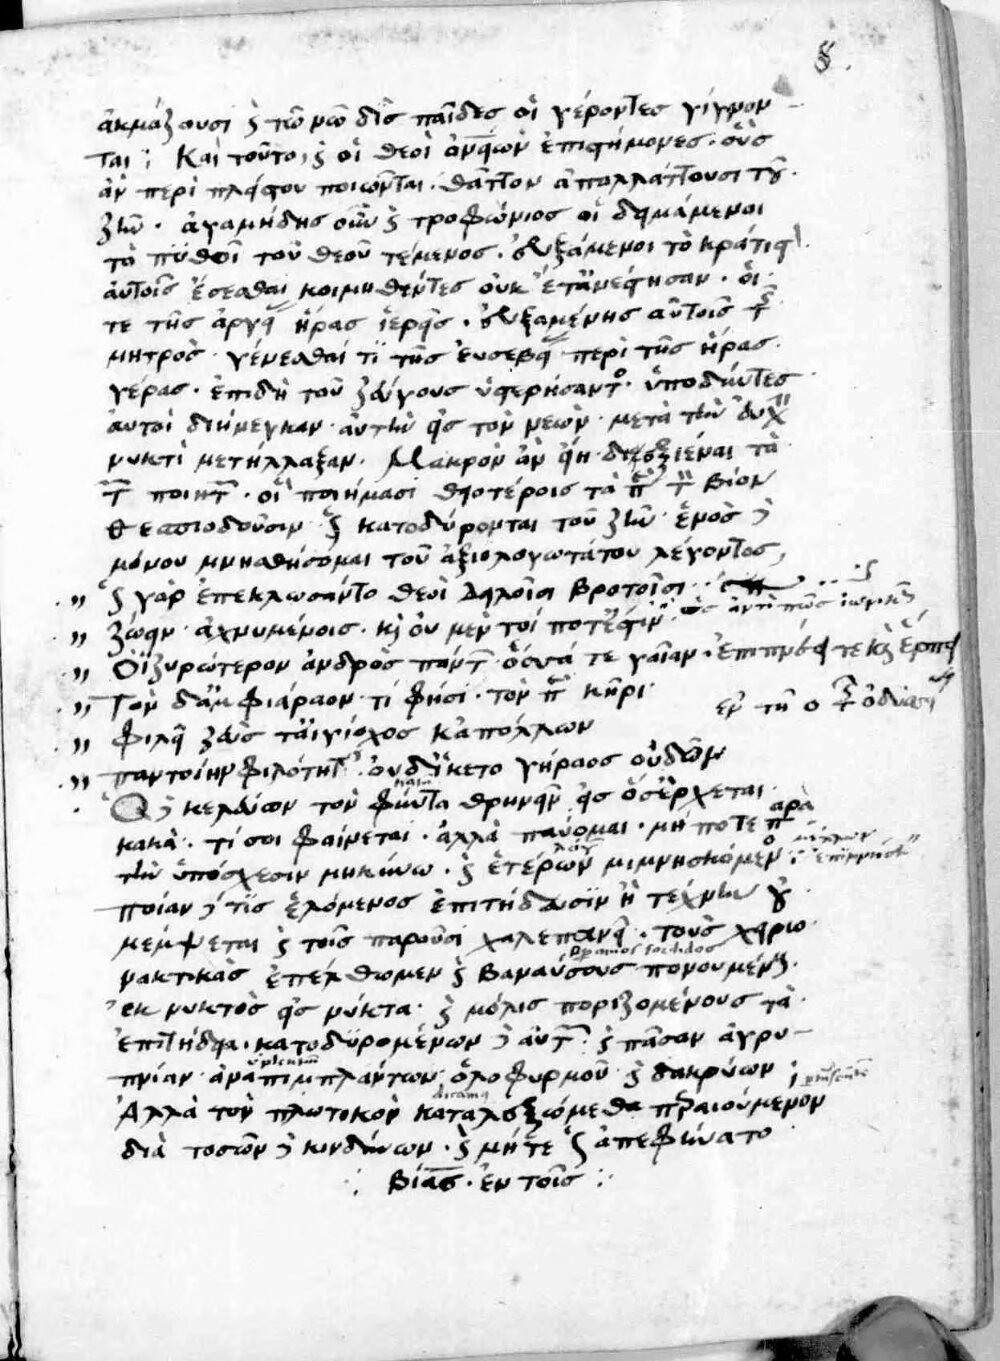 8.
ἀκμάζουσι ϛ τῶ νῶ δὶς παῖδες οἱ γέροντες γίγνον
ται : Καὶ τοῦτο ϛ οἱ θεοὶ ἀνθρωπείων ἐπιστήμονες . οὓς
ἂν περὶ πλείστου ποιῶνται . θᾶττον ἀπαλλάττουσι τοῦ
ζῆν . ἀγαμήδης οὖν ϛ τροφώνιος οἱ δειμάμενοι
τὸ πυθοῖ τοῦ θεοῦ τέμενος . εὐξάμενοι τὸ κράτιστ
αὐτοῖς ἔσεσθαι κοιμηθέντες οὐκέτ' ἀνέστησαν . οἵ
τε τῆς ἀργεί ἥρας ἱερείας . εὐξαμένης αὐτοῖς τῆς
μητρὸς . γένεσθαί τι τῆς εὐσεβεί περὶ τῆς ἥρας
γέρας . ἐπιδὴ τοῦ ζεύγους ὑστερήσαντος . ὑποδύντες
αὐτοὶ διήνεγκαν . αὐτὴν εἰς τὸν νεὼν . μετὰ τὴν εὐχὴν
νυκτὶ μετήλλαξαν . Μακρὸν ἂν εἴη διεξιέναι τὰ
τῶν ποιητῶν . οἳ ποιήμασι θειοτέροις τὰ περὶ τὸν βίον
θεσπιοδοῦσιν . ϛ κατοδύρονται τοῦ ζῆν . ἑνὸς
μόνου μνησθήσομαι τοῦ ἀξιολογωτάτου λέγοντος
,, ὣς γὰρ ἐπεκλώσαντο θεοὶ δειλοῖσι βροτοῖσι
,, ζώειν ἀχνυμένοις . κὶ οὐ μέν τοί ποτέ φησιν
,, Ὀϊζυρώτερον ἀνδρὸς πάντων ὅσσά τε γαῖαν . ἐπιπνείει τε κὶ ἕρπει
,, Τὸν δ' ἀμφιάραον . τί φησι . τὸν περὶ κῆρι
,, φίλει ζεύς τ' αἰγίοχος κ' ἀπόλλων
,, παντοίην φιλότητ . οὐδ' ἵκετο γήραος οὐδὸν
Ὁ κελεύων τὸν φύντα θρηνεῖν εἰς ὅσ' ἔρχεται
κακὰ . τί σοι φαίνεται . ἀλλὰ παύομαι . μή ποτε παρὰ
τὴν ὑπόσχεσιν μηκύνω . ϛ ἑτέρων μιμνησκόμενος
ποίαν τις ἑλόμενος ἐπιτήδευσιν ἢ τέχνην οὐ
μέμψεται ϛ τοῖς παροῦσι χαλεπανεῖ . τοὺς χειρω
νακτικὰς ἐπέλθωμεν ϛ βαναύσους πονουμένους
ἐκ νυκτὸς εἰς νύκτα . ϛ μόλις ποριζομένους τὰ
ἐπιτήδεια . κατοδυρομένων αὐτῶν ϛ πᾶσαν ἀγρυ
πνίαν . ἀναπιμπλάντων ὀλοφυρμοῦ ϛ δακρύων
Ἀλλὰ τὸν πλωτικὸν καταλεξώμεθα περαιούμενον
διὰ τοσῶν κινδύνων . ϛ μήτε ὡς ἀπεφήνατο
βίας . ἐν τοῖς :